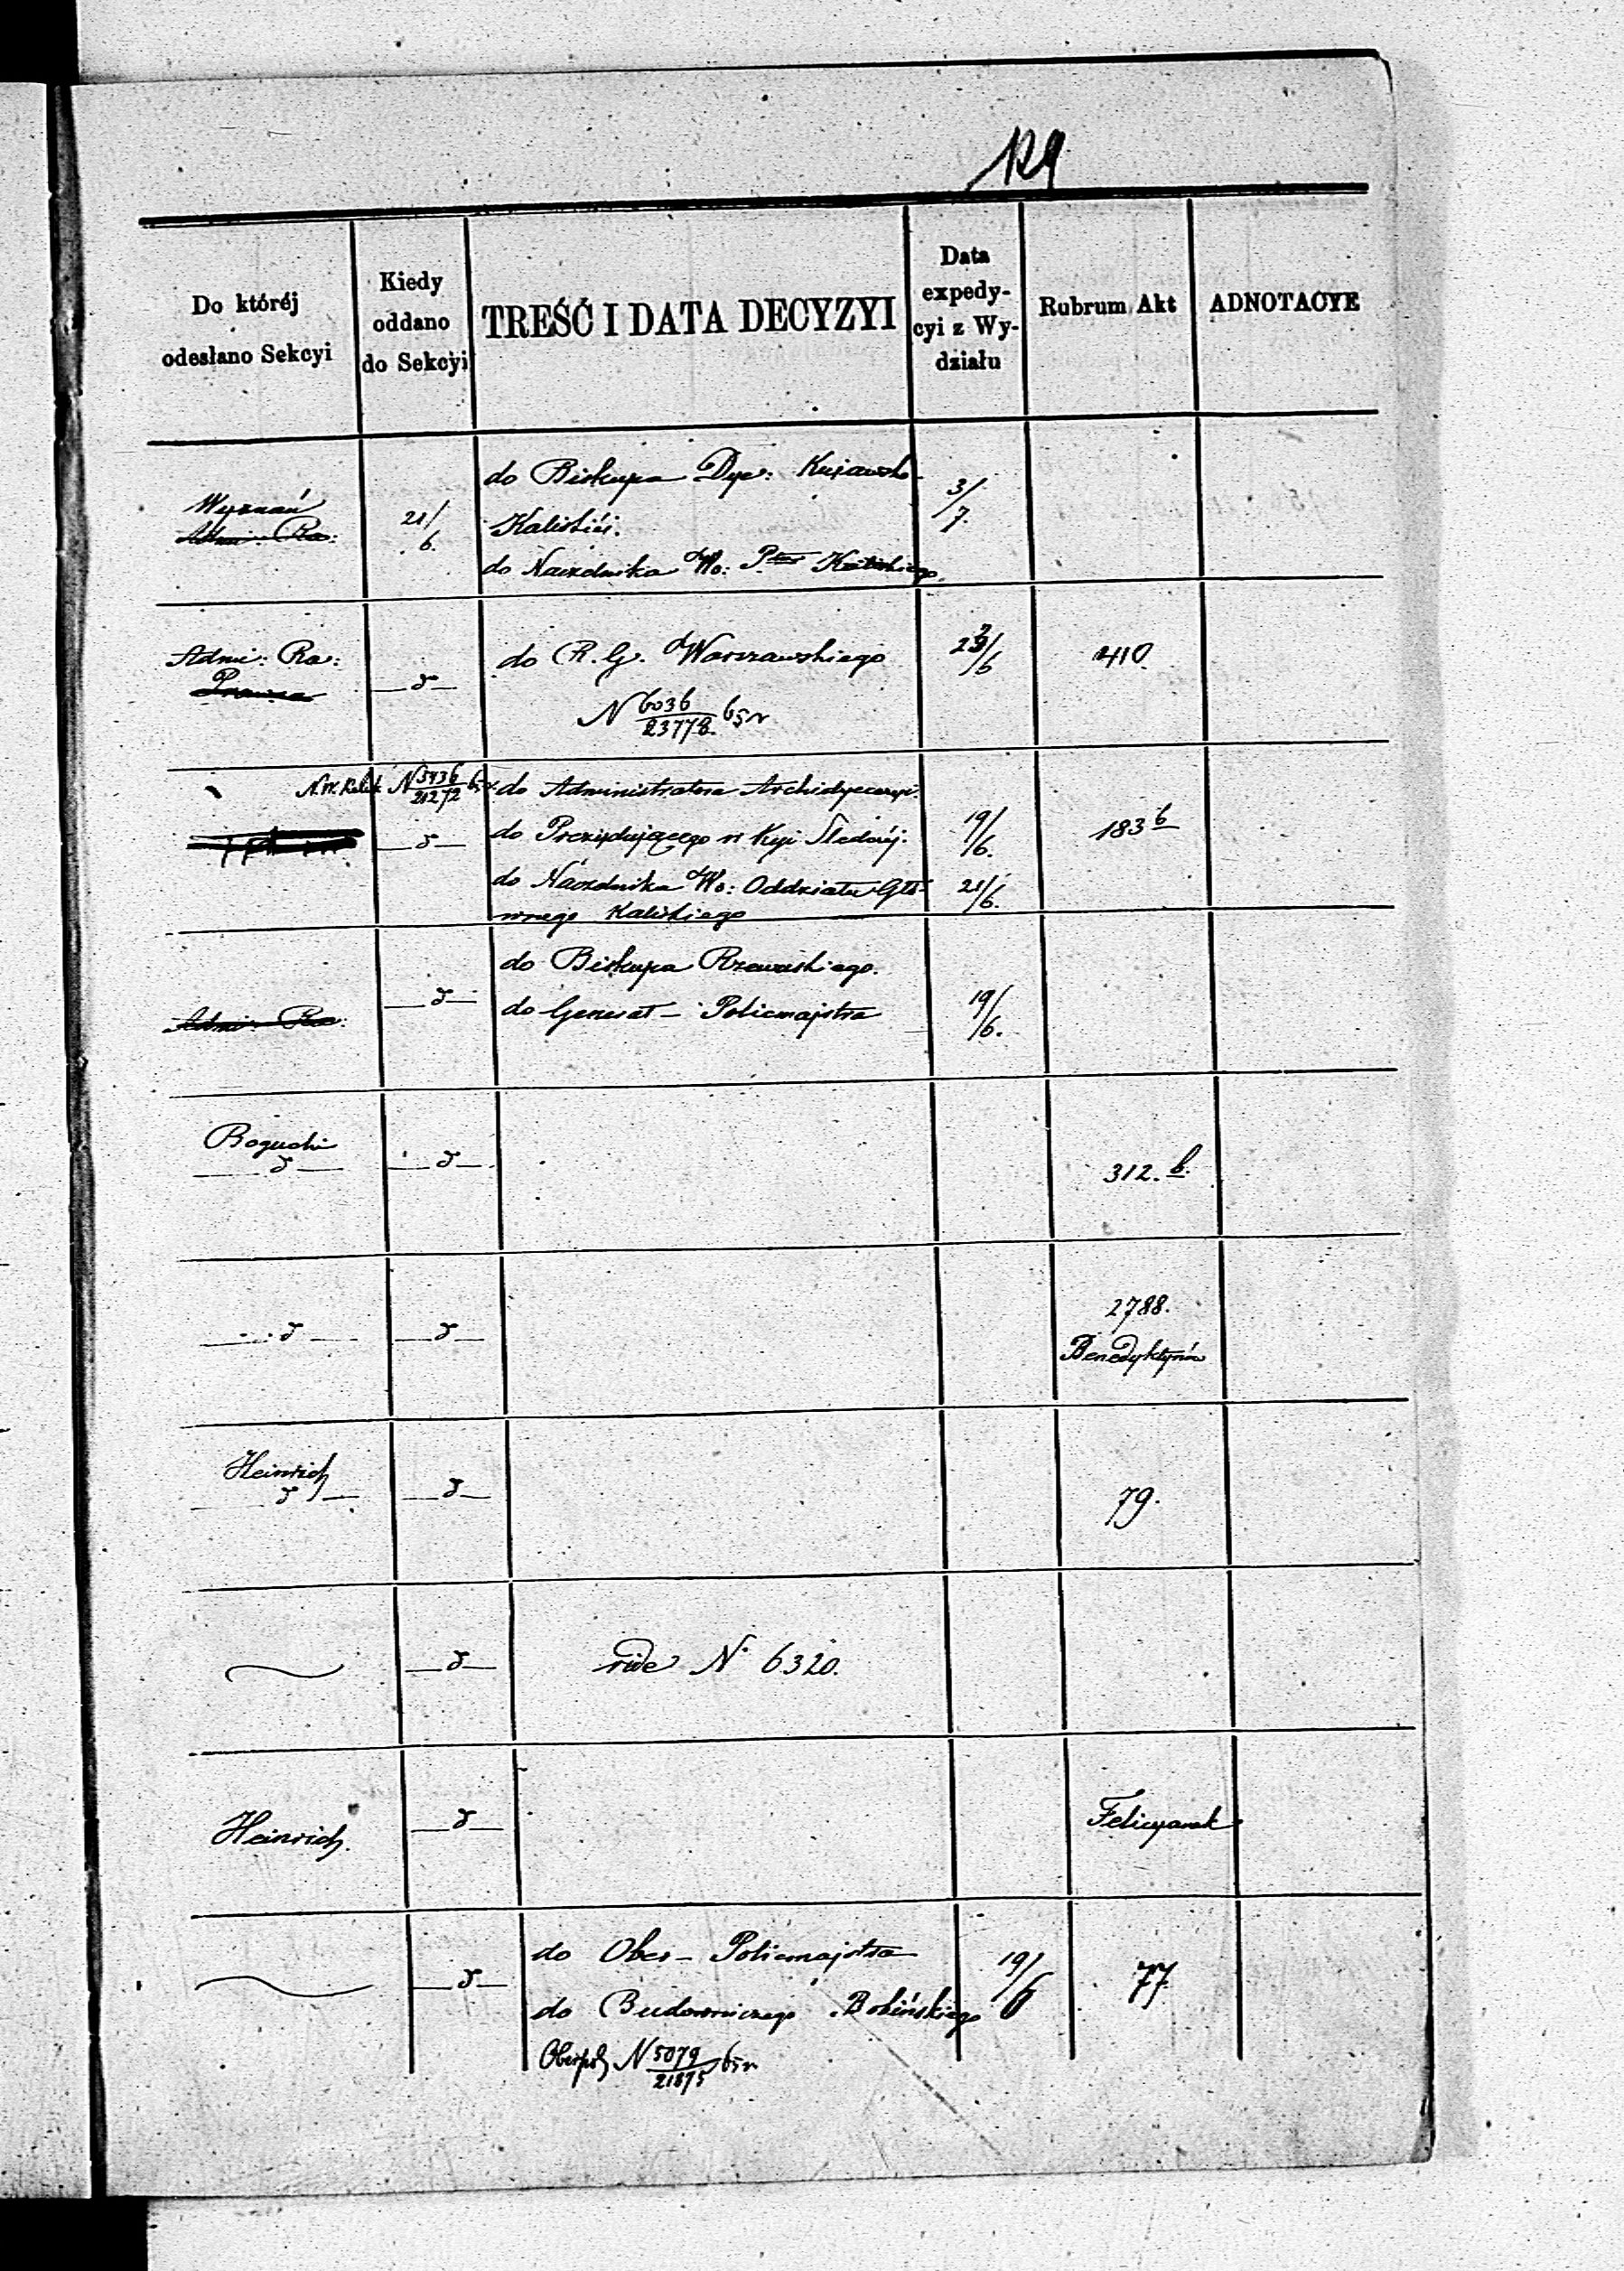 129
Do któréj
odesłano Sekcyi
Kiedy
oddano
do Sekcyi
TREŚĆ I DATA DECYZYI
Data
expedy-
cyi z Wy-
działu
Rubrum Akt
ADNOTACYE
Wyznań
Admi: Ra:
21/6.
do Biskupa Dye: Kujawsko-
Kaliskiéj.
do Naczelnika Wo: Kaliskiego.
3/7.
Admi: Ra:
Prawna
d
do R. G. Warszawskiego
N 6036/23778. 65 r
6
410
N 5936/21272 65 r
d
do Administratora Archidyecezyi.
do Prezydującego w Kyi Śledczéj.
do Naczelnika Wo: Oddziału Głó-
wnego Kaliskiego
19/6.
21/6.
183 b
Admi: Ra:
d
do Biskupa Rzewuskiego.
do Generał-Policmajstra
19/6.
Bogucki
d
d
312. b.
d
d
2788.
Benedyktynów
Heinrich
d
d
79.
d
vide N. 6320.
Heinrich.
d
Felicyanek
d
do Ober-Policmajstra
do Budowniczego Bobińskiego
Oberpol N 5079/21875 65 r
19/6
77